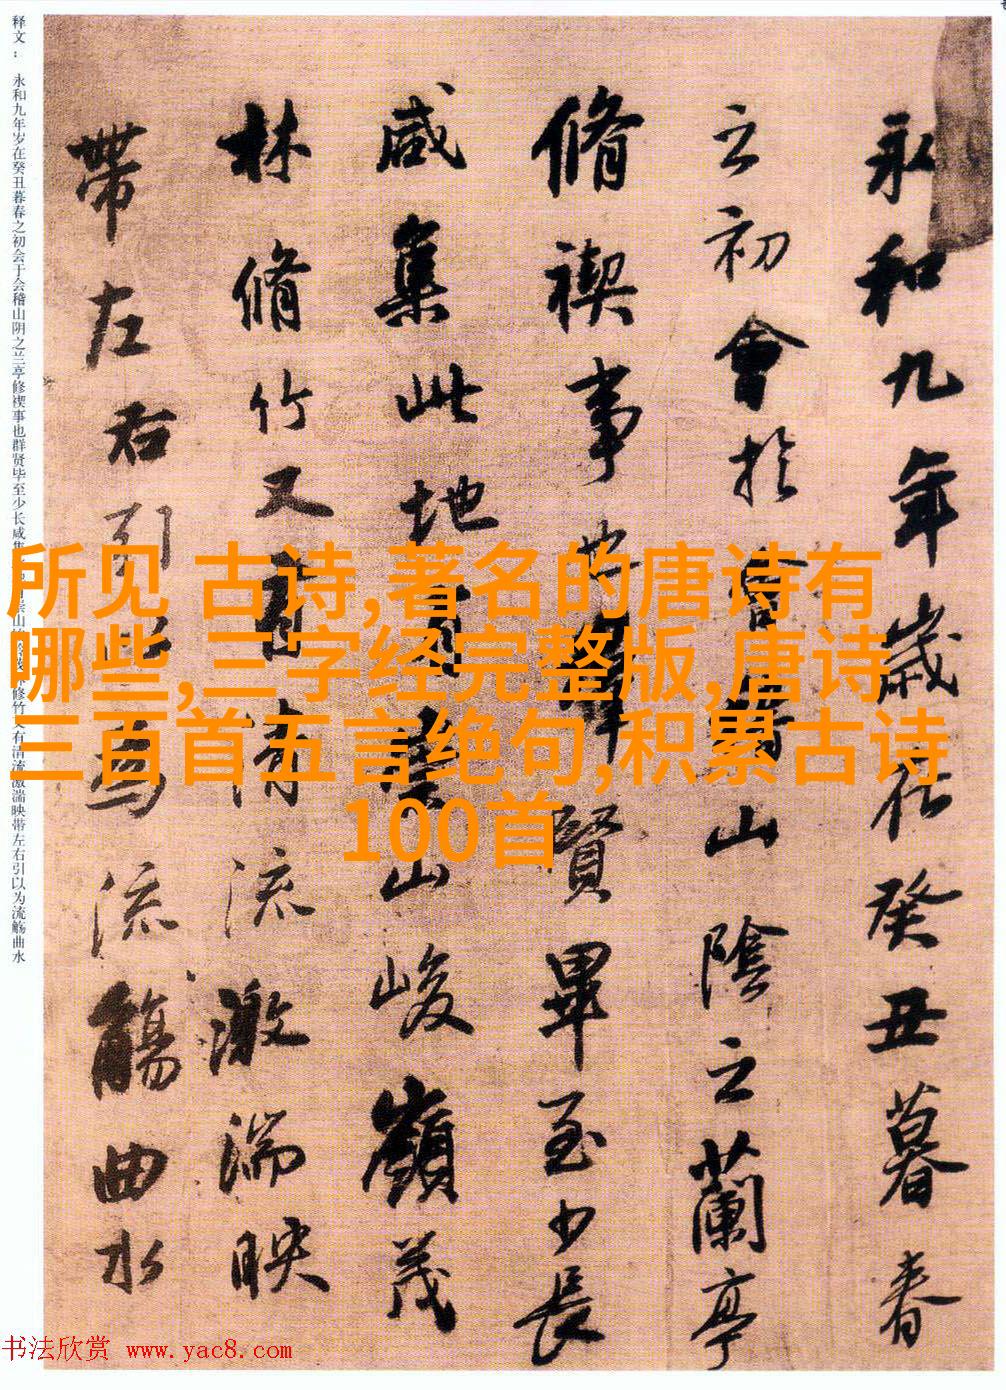 永和九年歲在癸丑暮春
之初會於會稽山陰之蘭亭
脩禊事也群賢畢至少長
咸集此地有崇山峻嶺茂
林脩竹又有清流激湍映
帶左右引以為流觴曲水
释文： 永和九年岁在癸丑暮春之初会于会稽山阴之兰亭修禊事也群贤毕至少长咸集 崇山 修竹又有清流激湍映带左右引以为流觞曲水
所见 古诗,著名的唐诗有
哪些,三字经完整版,唐诗
三百首五言绝句,积累古诗
100首
书法欣赏 www.yac8.com